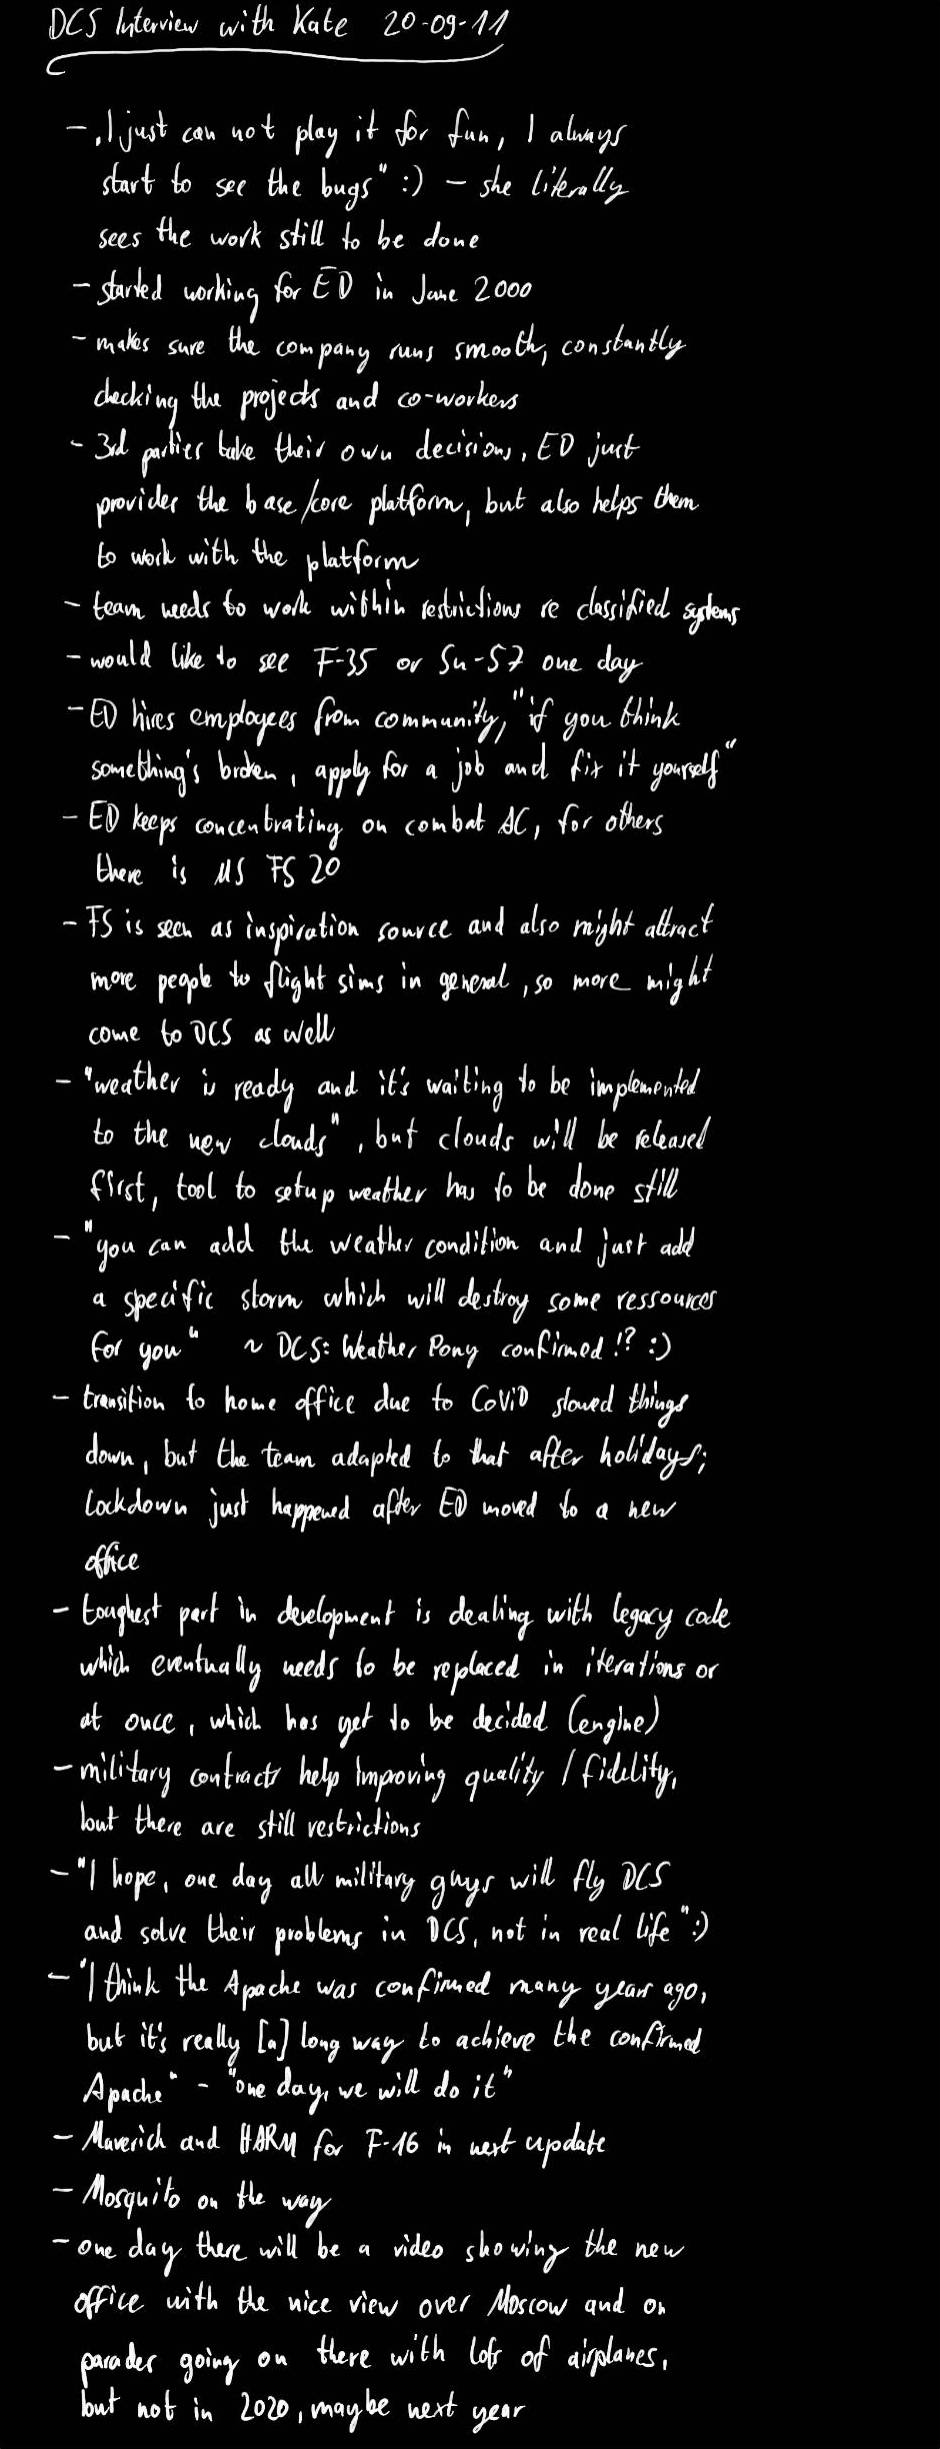 DCS Interview with Kate 20-09-11
- „I just can not play it for fun, I always
start to see the bugs" :) - she literally
sees the work still to be done
- started working for ED in June 2000
- makes sure the company runs smooth, constantly
checking the projects and co-workers
- 3rd parties take their own decisions, ED just
provides the base/core platform, but also helps them
to work with the platform
- team needs to work within restrictions re classified systems
- would like to see F-35 or Su-57 one day
- ED hires employees from community, "if you think
something's broken, apply for a job and fix it yourself"
- ED keeps concentrating on combat AC, for others
there is MS FS 20
- FS is seen as inspiration source and also might attract
more people to flight sims in general, so more might
come to DCS as well
- "weather is ready and it's waiting to be implemented
to the new clouds", but clouds will be released
first, tool to setup weather has to be done still
- "you can add the weather condition and just add
a specific storm which will destroy some ressources
for you" ~ DCS: Weather Pony confirmed!? :)
- transition to home office due to CoViD slowed things
down, but the team adapted to that after holidays;
Lockdown just happened after ED moved to a new
office
- toughest part in development is dealing with legacy code
which eventually needs to be replaced in iterations or
at once, which has yet to be decided (engine)
- military contracts help improving quality / fidelity,
but there are still restrictions
- "I hope, one day all military guys will fly DCS
and solve their problems in DCS, not in real life" :)
- "I think the Apache was confirmed many years ago,
but it's really [a] long way to achieve the confirmed
Apache" - "one day, we will do it"
- Maverick and HARM for F-16 in next update
- Mosquito on the way
- one day there will be a video showing the new
office with the nice view over Moscow and on
parades going on there with lots of airplanes,
but not in 2020, maybe next year